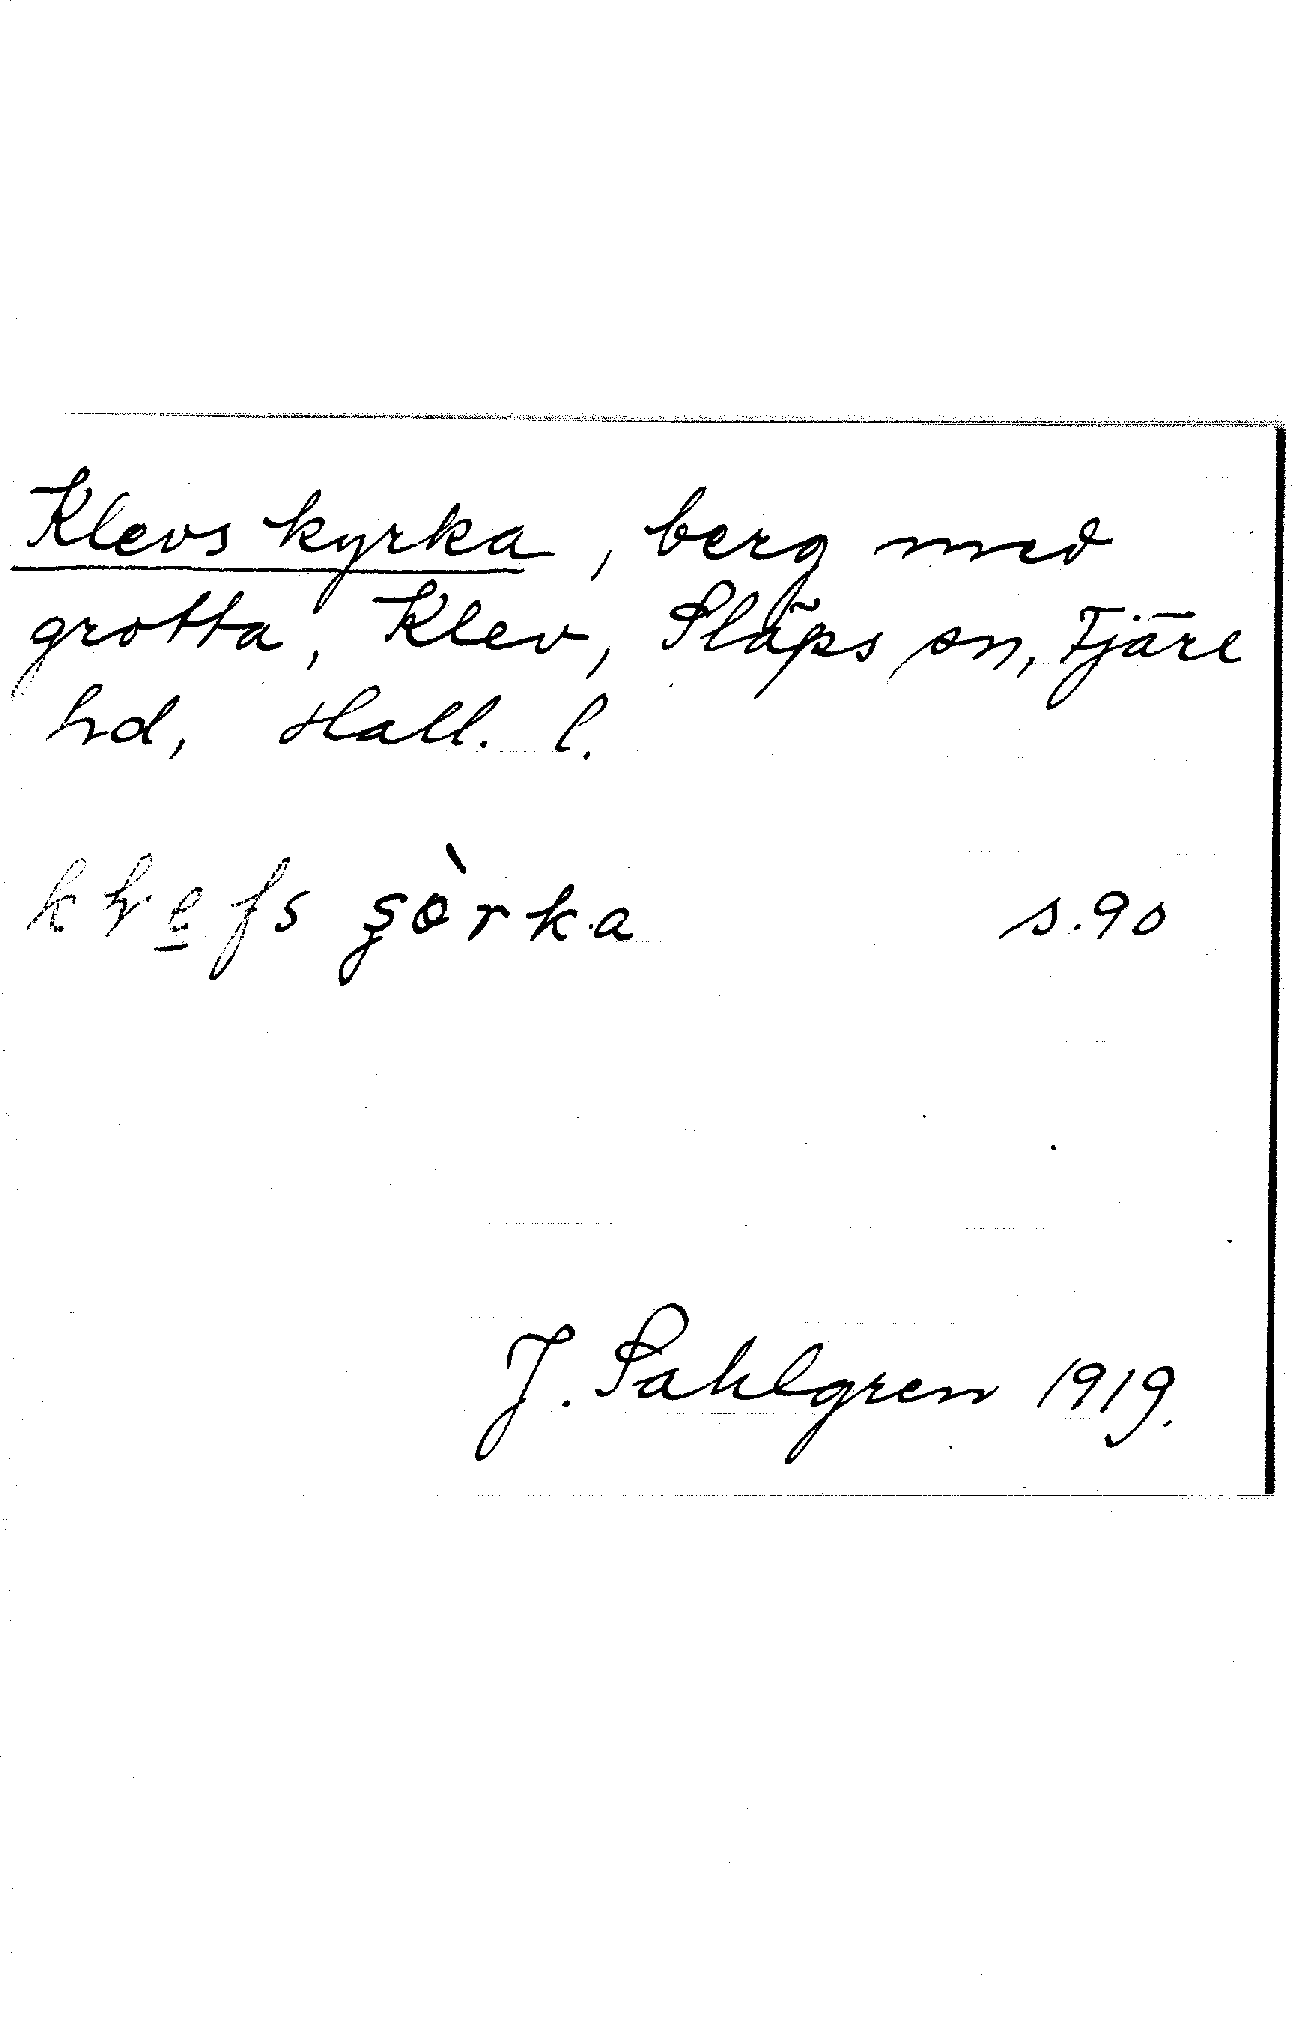 Klevs kyrka, berg med
grotta, Klev, Släps sn, Fjäre
hd, Hall. l.
s. 90
J. Sahlgren 1919.